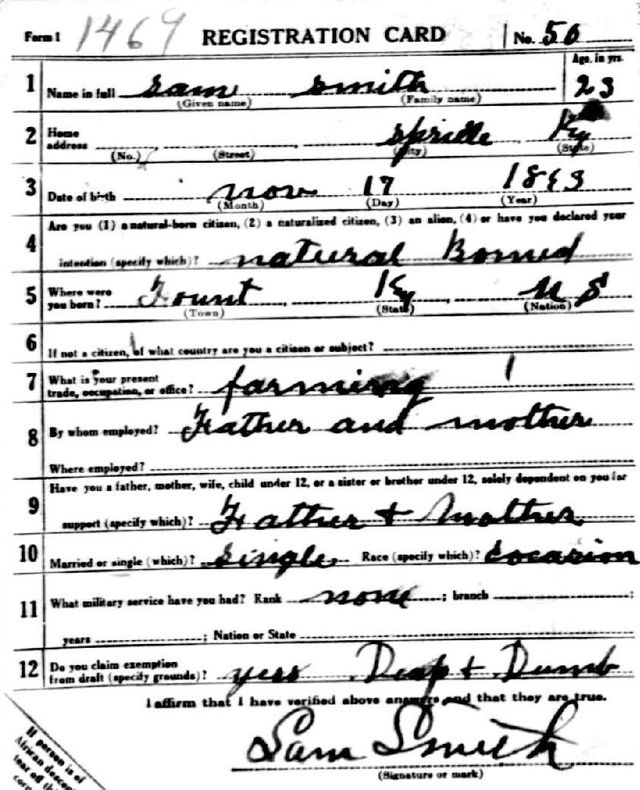 Form 1 1469 REGISTRATION CARD No. 56
Age, in yrs.
1 Name in full Sam Smith 23
(Given name) (Family name)
2 Home address Ky
(No.) (Street) (City) (State)
3 Date of birth Nov 17 1893
(Month) (Day) (Year)
Are you (1) a natural-born citizen, (2) a naturalized citizen, (3) an alien, (4) or have you declared your
4 intention (specify which)? natural Borned
5 Where were you born? Fount Ky U S
(Town) (State) (Nation)
6 If not a citizen, of what country are you a citizen or subject?
7 What is your present trade, occupation, or office? farming
8 By whom employed? Father and mother
Where employed?
Have you a father, mother, wife, child under 12, or a sister or brother under 12, solely dependent on you for
9 support (specify which)? Father + Mother
10 Married or single (which)? Single Race (specify which)? Cocasion
11 What military service have you had? Rank none ; branch ;
years ; Nation or State
12 Do you claim exemption from draft (specify grounds)? yess Deaf + Dumb
I affirm that I have verified above answers and that they are true.
Sam Smith
(Signature or mark)
If person is of
African descent
tear off th
cor